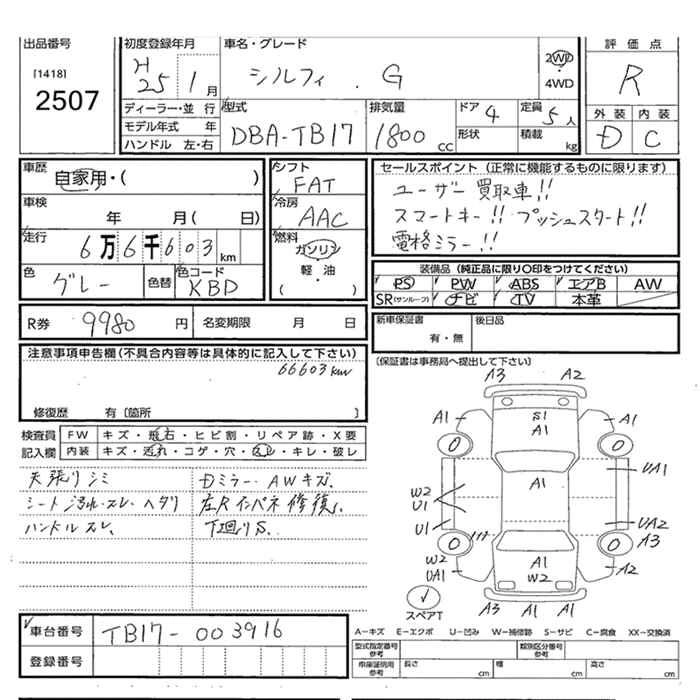 出品番号
[1418]
2507
初度登録年月
H25年 1月
車名・グレード
シルフィ . G
2WD
4WD
評価点
R
ディーラー・並行
モデル年式 年
ハンドル 左・右
型式
DBA-TB17
排気量
1800 cc
ドア 4
形状
定員 5人
積載 kg
外装 内装
D C
車歴
自家用・( )
車検
年 月( 日)
走行
6万6千603 km
色
グレー
色替
色コード
KBD
シフト
FAT
冷房
AAC
燃料
ガソリン
・軽・油
( )
セールスポイント(正常に機能するものに限ります)
ユーザー買取車!!
スマートキー!! プッシュスタート!!
電格ミラー!!
装備品(純正品に限り○印をつけてください)
PS PW ABS エアB AW
SR(サンルーフ) ナビ TV 本革
R券 9980円
名変期限 月 日
新車保証書
有・無
後日品
(保証書は事務局へ提出して下さい)
注意事項申告欄(不具合内容等は具体的に記入して下さい)
66603km
修復歴 有〔箇所 〕
検査員 FW キズ・飛石・ヒビ割・リペア跡・X要
記入欄 内装 キズ・汚れ・コゲ・穴・スレ・キレ・破レ
天張りシミ
シート汚れ・スレ・ヘタリ
ハンドルスレ、
Dミラー・AWキズ.
左Rインパネ修復、
下廻りS.
A3 A2
A1 S1 A1
A1
A1
UA1
W2
U1
U1
UA2
A3
W2
UA1
A1
W2
A2
A3 A1 A1
スペアT
車台番号 TB17-003916
登録番号
A-キズ E-エクボ U-凹み W-補修跡 S-サビ C-腐食 XX-交換済
型式指定番号 参考
類別区分番号 参考
車庫証明用 参考
長さ cm
幅 cm
高さ cm